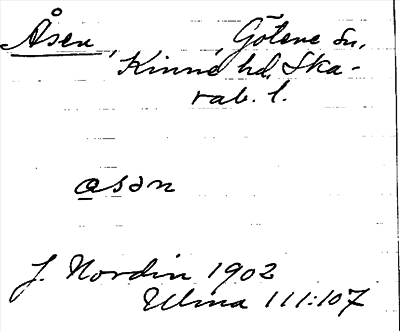 Åsen, , Götene sn,
Kinne hd, Ska-
rab. l.
asən
J. Nordin 1902
Ulma 111:107